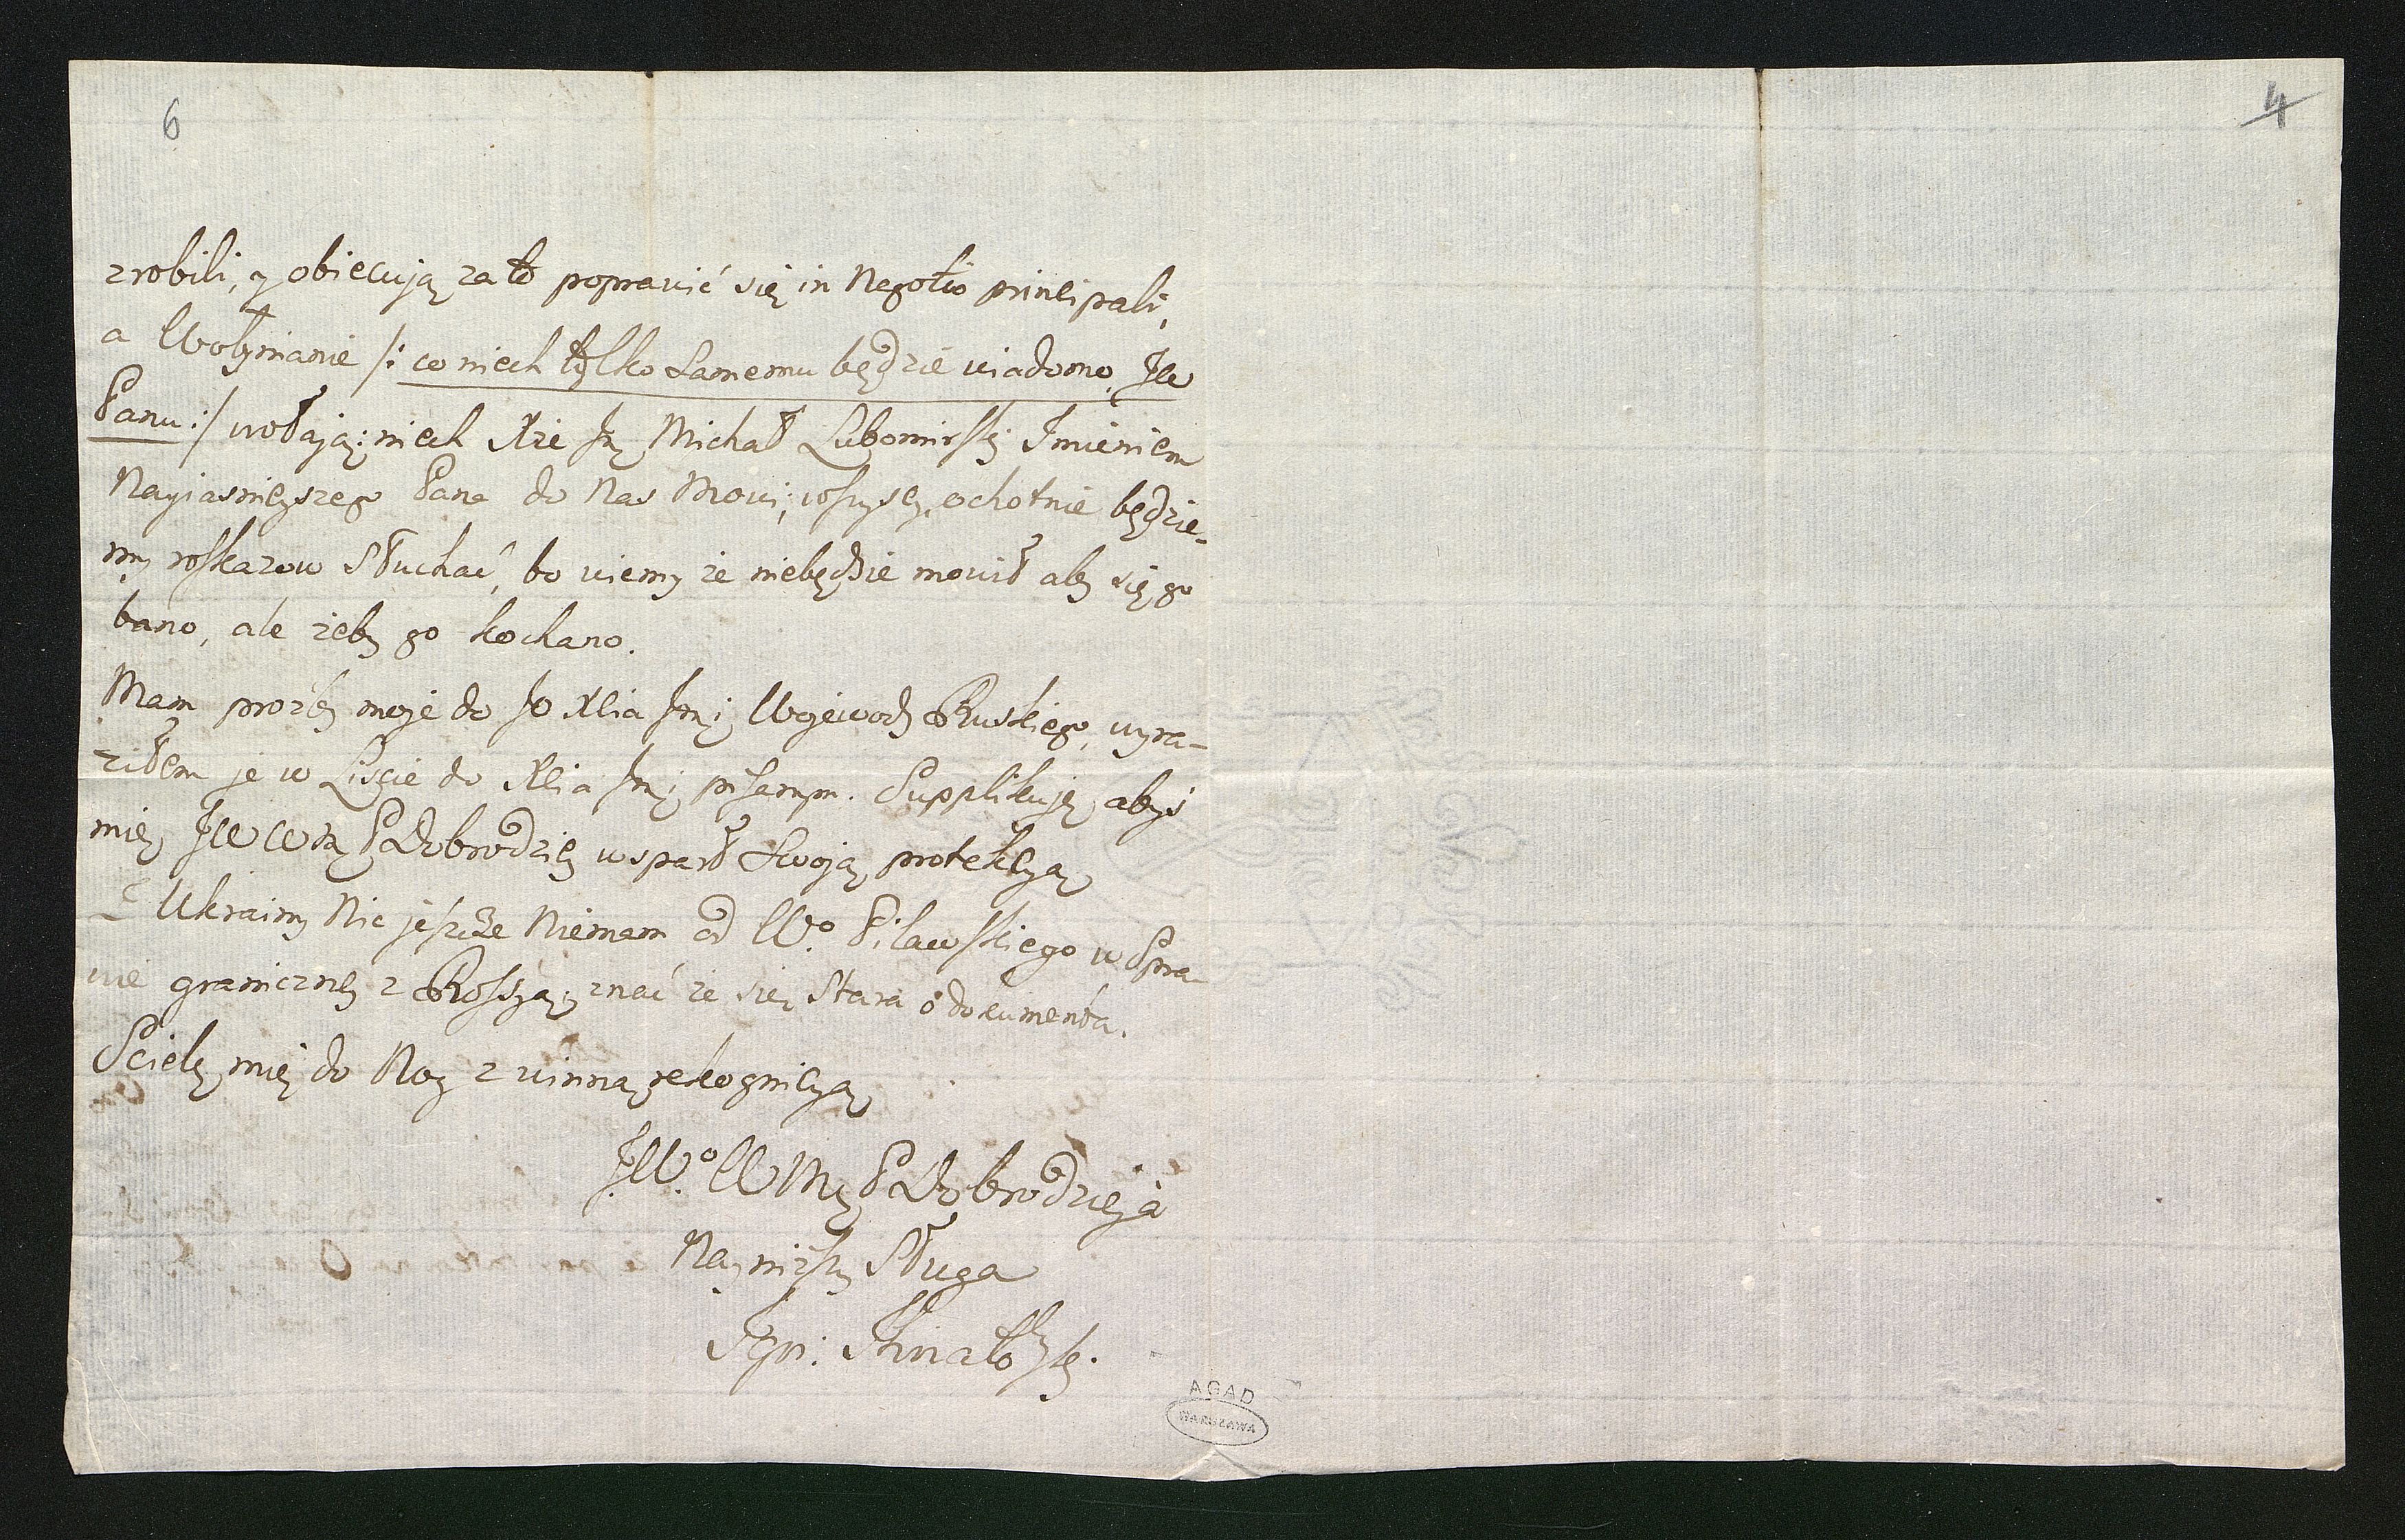 6
4
zrobili, y obiecują za to poprawić się in Negotio principali,
a Wołynianie /: co niech tylko Samemu będzie wiadomo JW
Panu :/ wołają: niech Xże Jmć Michał Lubomirski Imieniem
Nayiasnieyszego Pana do Nas Mowi, wszyscy ochotnie będzie-
my roskazow Słuchać, bo wiemy że niebędzie mowił aby się go
bano, ale żeby go kochano.
Mam prozby moje do JO Xcia Jmci Wojewody Ruskiego, wyra-
ziłem je w Liscie do Xcia Jmci pisanym. Supplikuję abyś
mię JW WM P Dobrodziey wsparł Swoją protekcyą
Z Ukrainy Nic jeszcze Niemam od Wo Pilawskiego w Spra-
wie graniczney z Rossyą; znać że się Stara o dokumenta.
Scielę mię do Nog z winną rekognicyą
JWo WM P Dobrodzieja
Nayniższy Sługa
AGAD
WARSZAWA